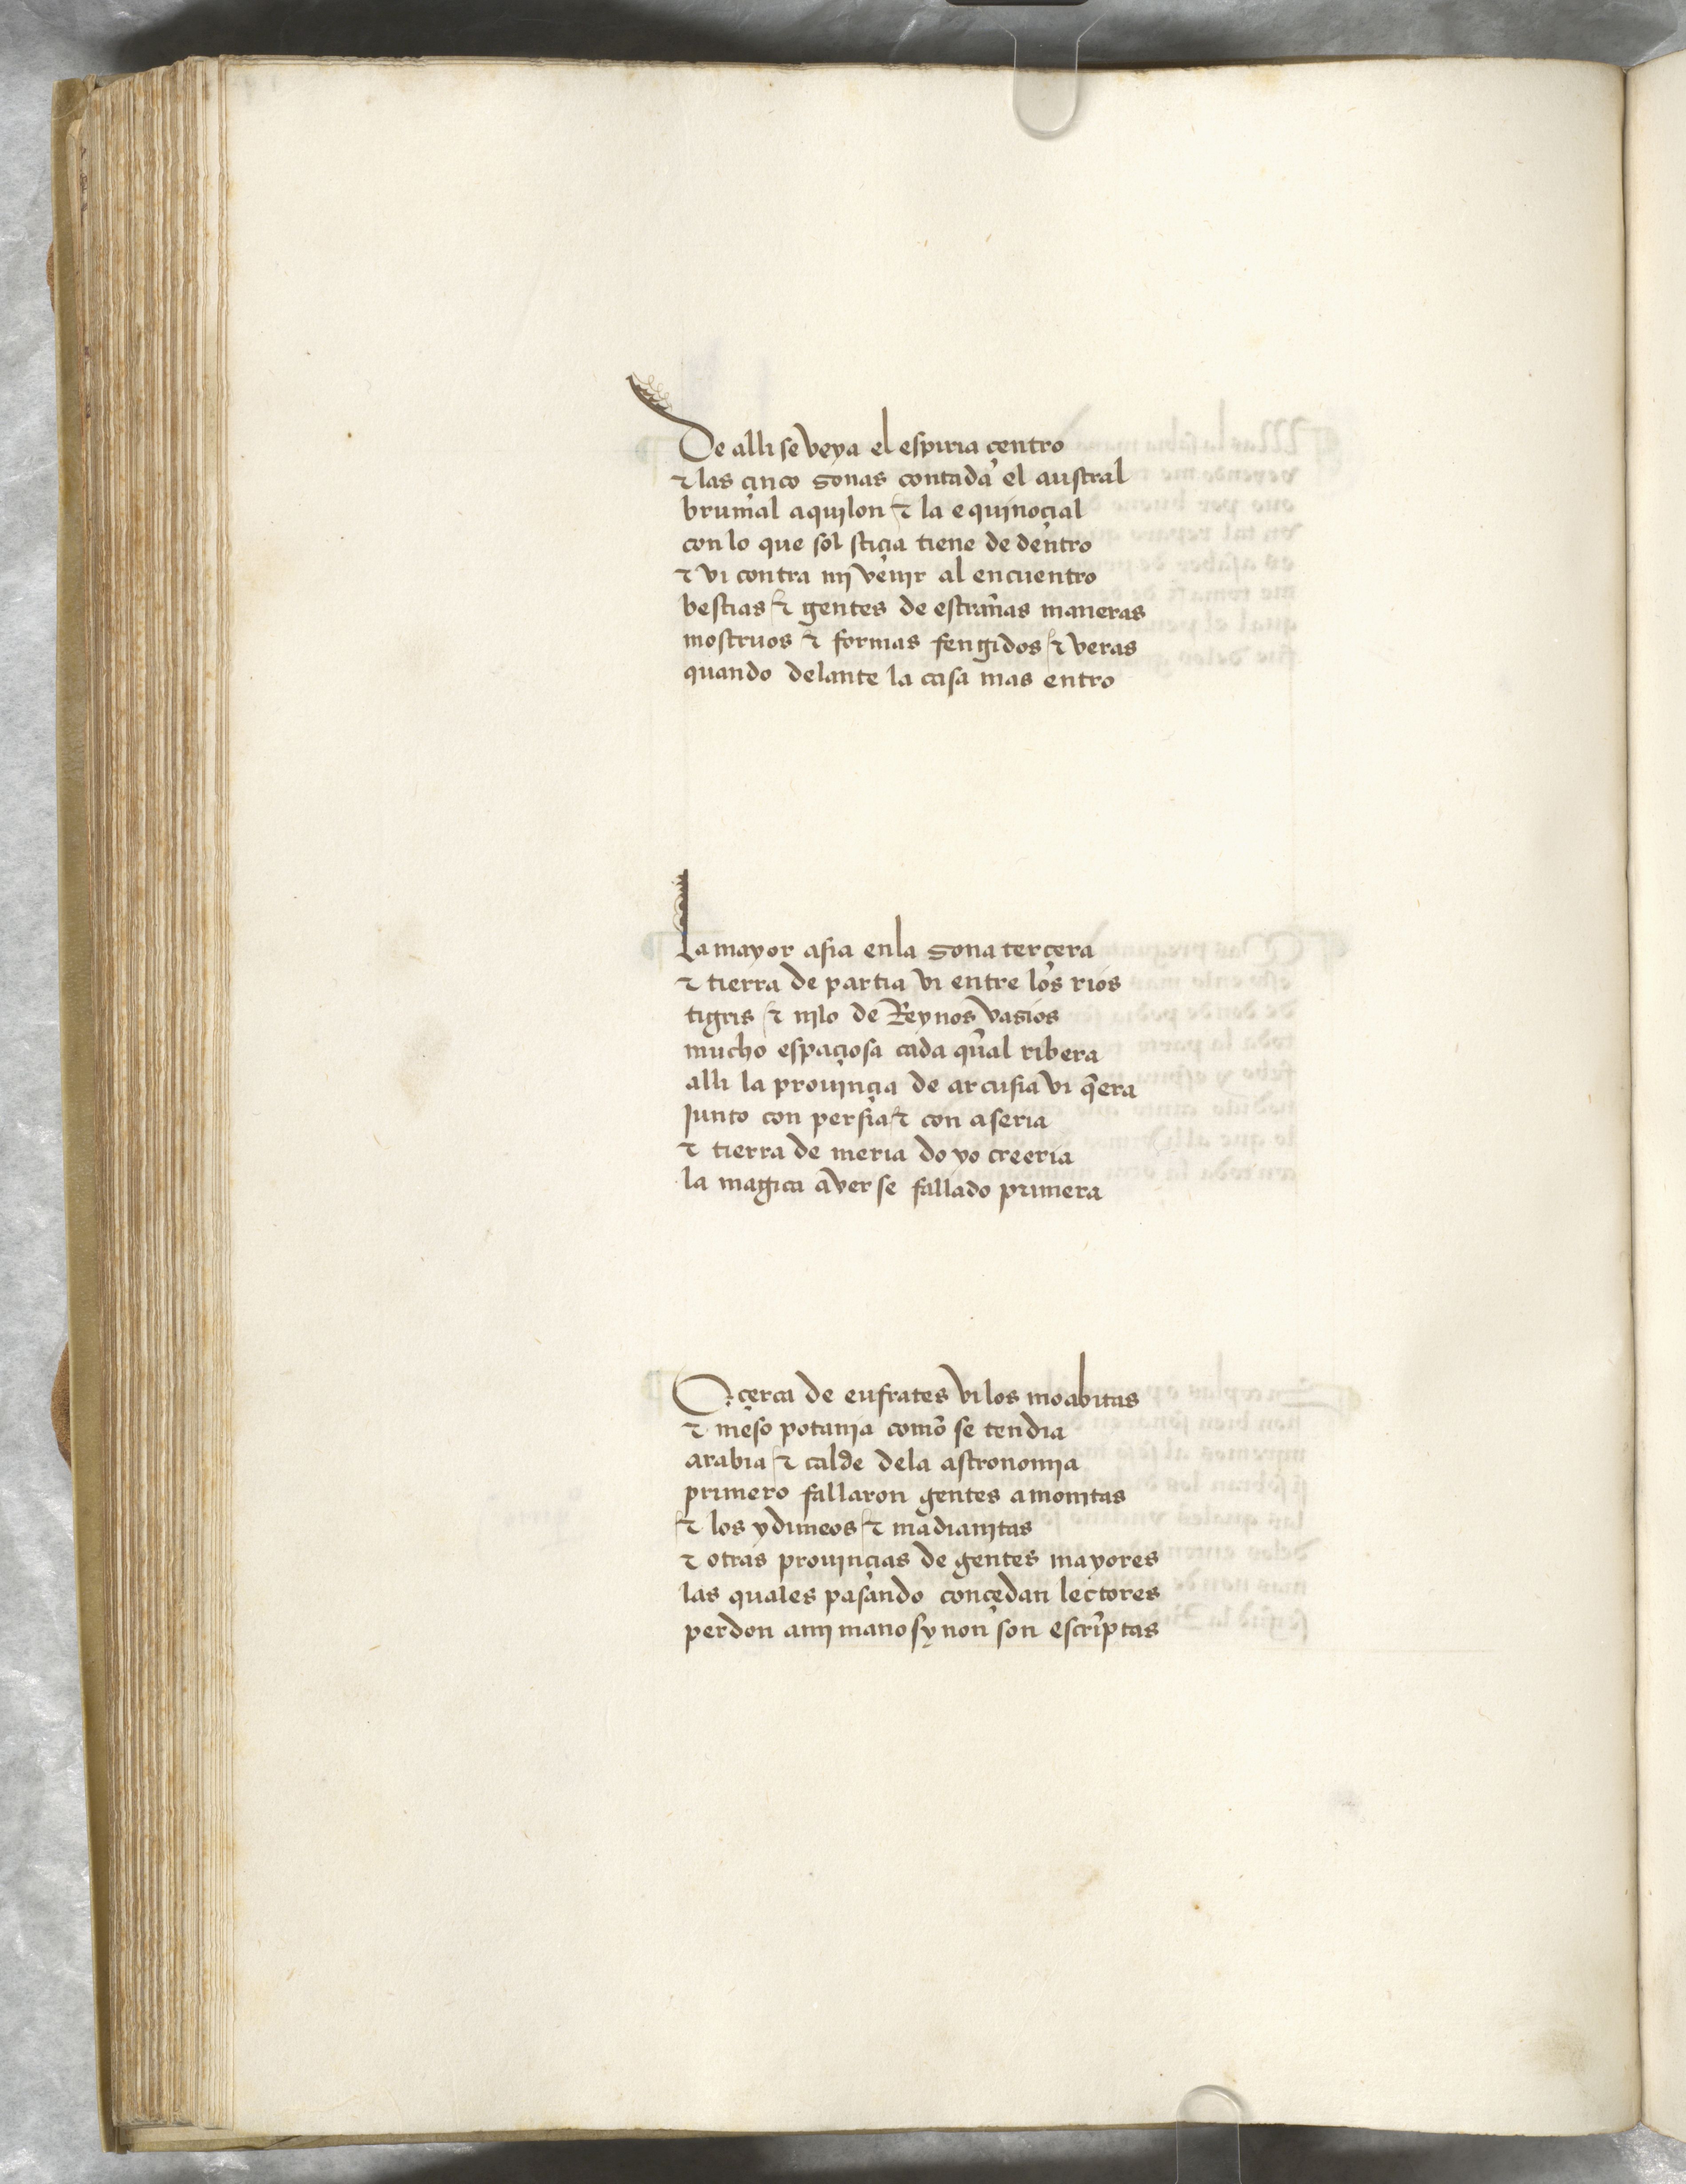 De alli se veya el espiria çentro
⁊ las çinco zonas contada el austral
brumal aquilon ⁊ la equinoçial
con lo que sol stiçia tiene de dentro
⁊ vi contra mj venjr al encuentro
bestias ⁊ gentes de estrañas maneras
mostruos ⁊ formas fengidos ⁊ veras
quando delante la casa mas entro
La mayor asia enla zona terçera
⁊ tierra de partia vi entre los rios
tigris ⁊ njlo de Reynos vazios
mucho espaçiosa cada qual ribera
alli la proujnçia de arcusia vi q̃era
junto con persia ⁊ con aseria
⁊ tierra de meria do yo creeria
la magica aver se fallado primera
O çerca de eufrates vi los moabitas
⁊ meso potamja como se tendia
arabia ⁊ calde dela astronomja
primero fallaron gentes amonitas
⁊ los ydumeos ⁊ madianjtas
⁊ otras proujnçias de gentes mayores
las quales pasando conçedan lectores
perdon amj mano sy non son escriptas